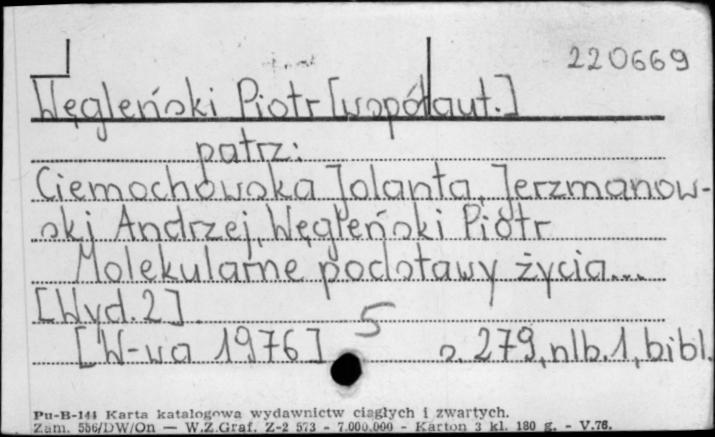 220669
Węgleński Piotr [współaut.]
patrz:
Ciemochowska Jolanta, Jerzmanow-
ski Andrzej, Węgleński Piotr
Molekularne podstawy życia...
[Wyd. 2]
5
[W-wa 1976] s. 279, nlb. 1, bibl.
Pu-B-144 Karta katalogowa wydawnictw ciągłych i zwartych.
Zam. 556/DW/On — W.Z.Graf. Z-2 573 - 7.000.000 - Karton 3 kl. 180 g. - V.76.